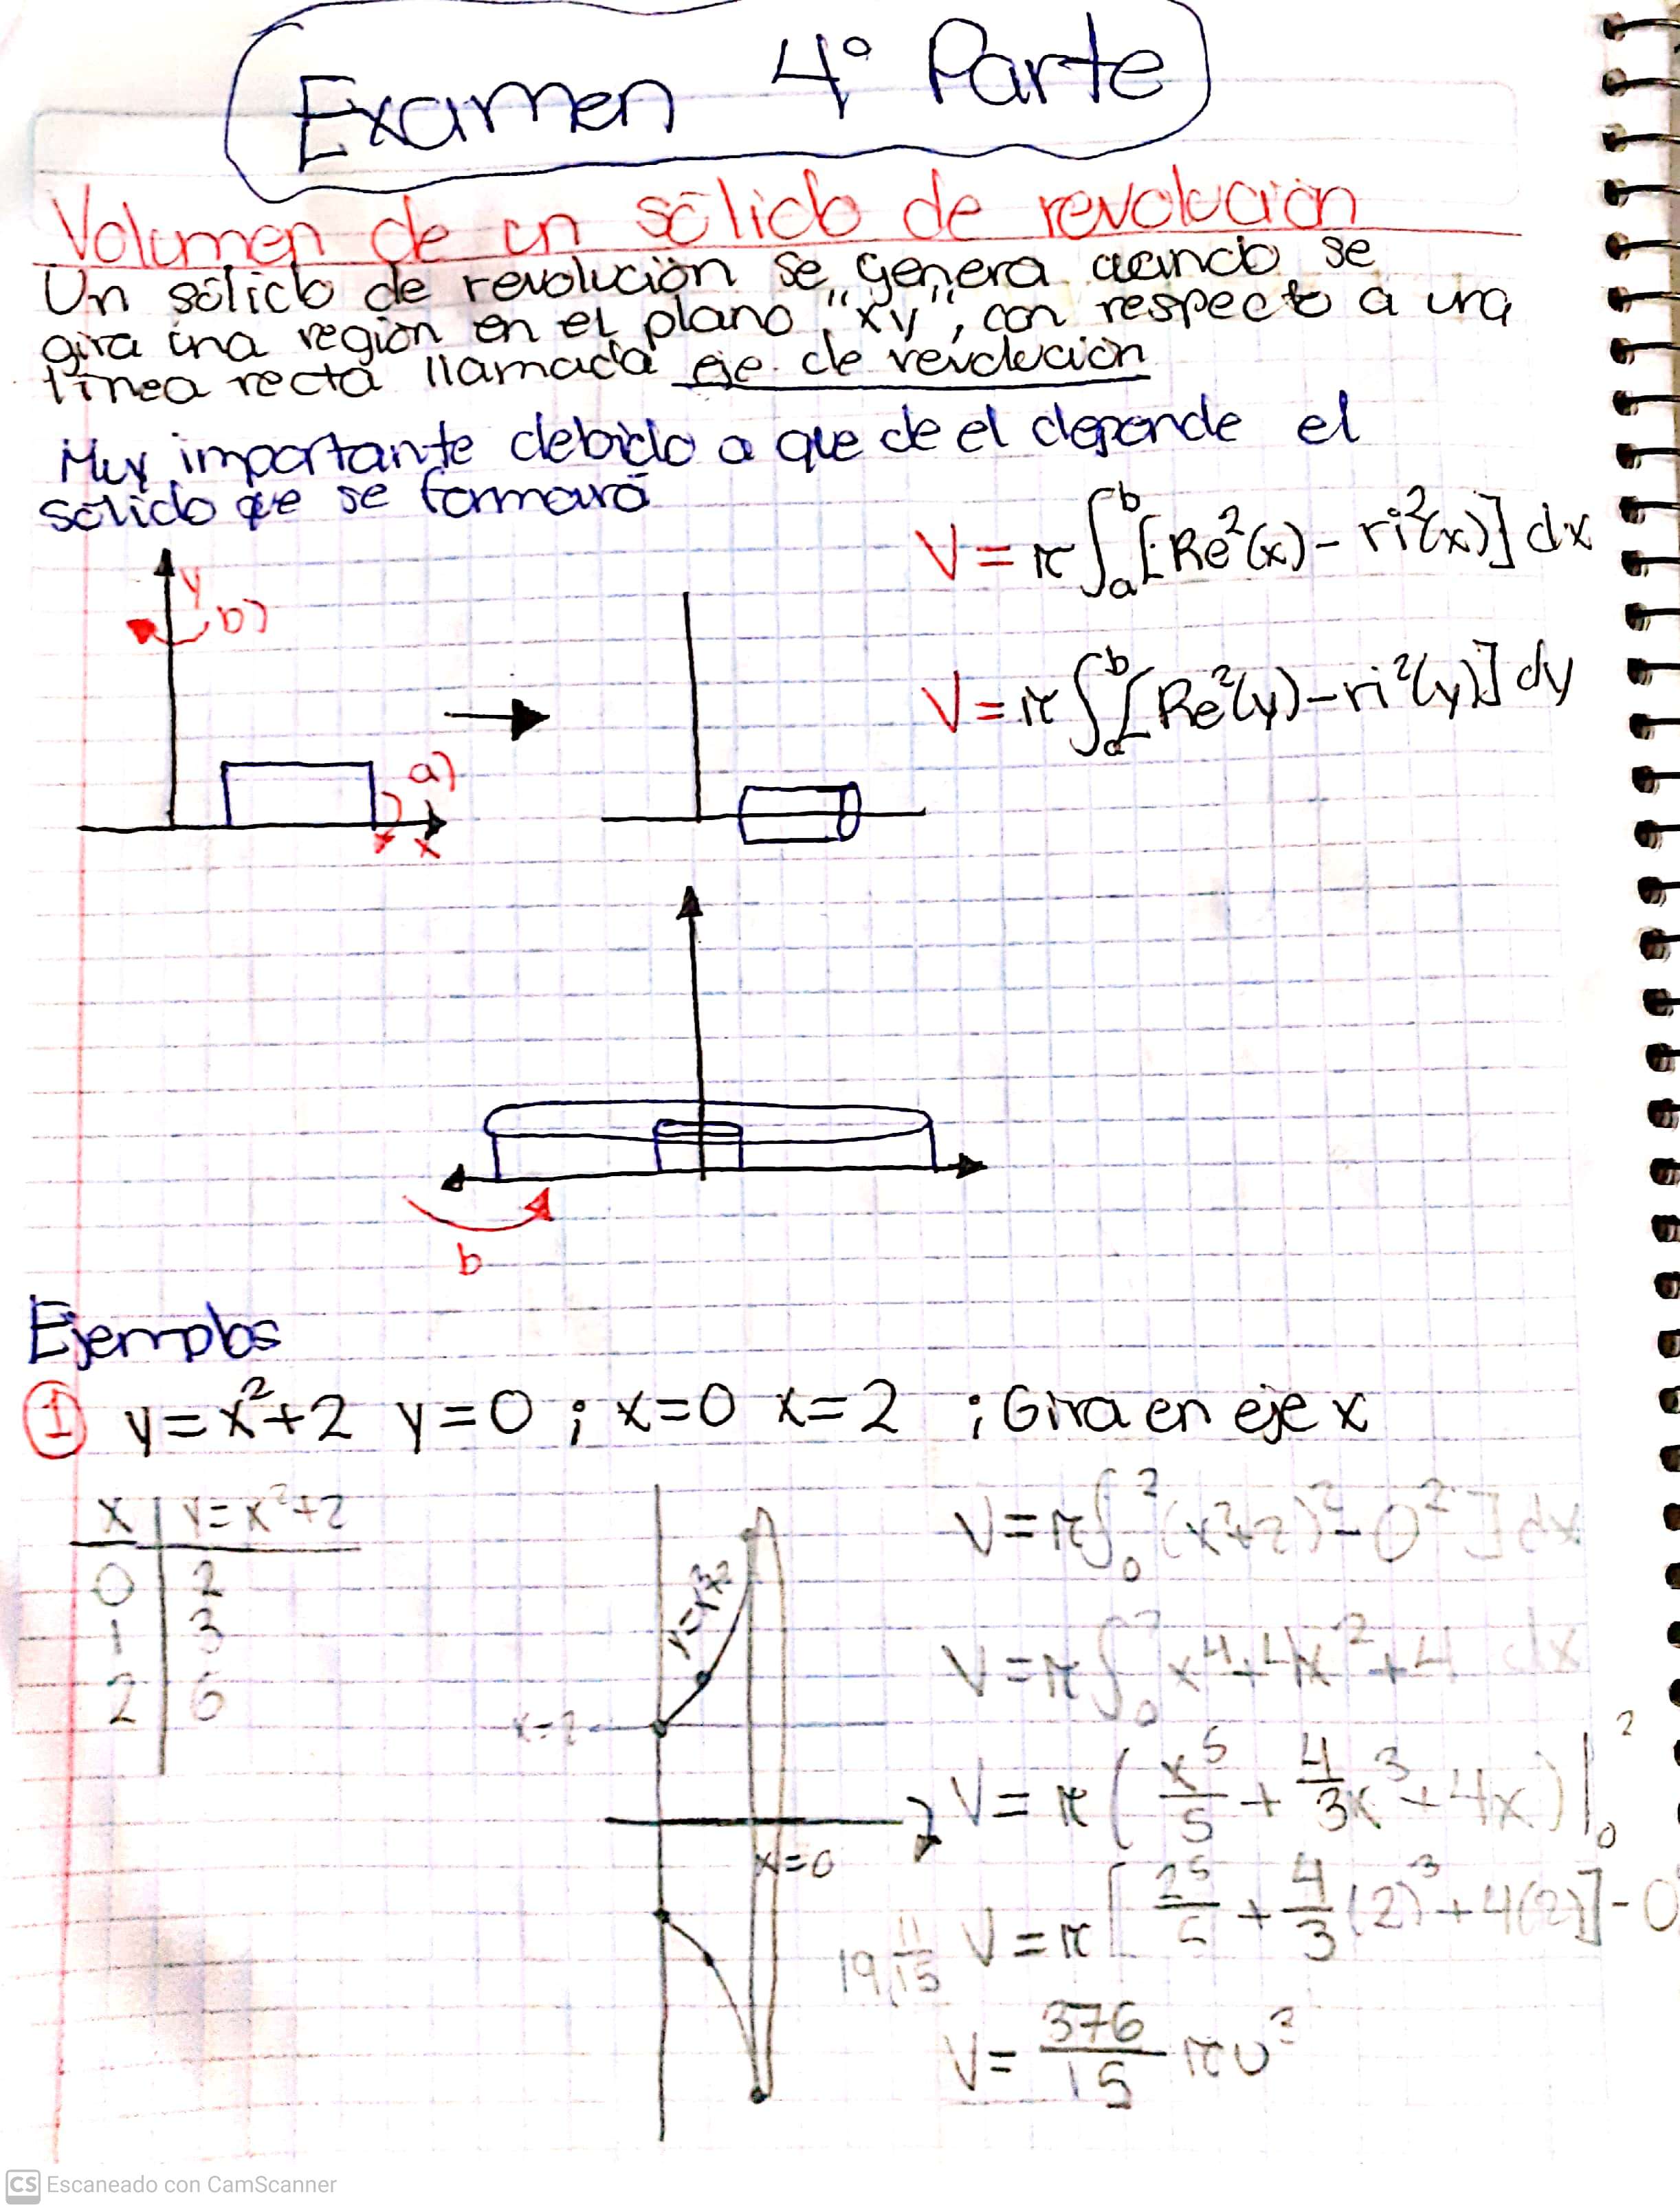 Examen 4° Parte
Volumen de un sólido de revolución
Un sólido de revolución se genera cuando se
gira una región en el plano "xy", con respecto a una
línea recta llamada eje de revolución
Muy importante debido a que de el depende el
sólido que se formará
V = π∫ₐᵇ [Re²(x) - ri²(x)] dx
y
b)
V = π∫ₐᵇ [Re²(y) - ri²(y)] dy
a)
x
b
Ejemplos
① y = x²+2 y = 0 ; x=0 x=2 ; Gira en eje x
x | y = x²+2
0 | 2
1 | 3
2 | 6
y=x²+2
x=2
x=0
V = π∫₀² [(x²+2)² - 0²] dx
V = π∫₀² x⁴+4x²+4 dx
V = π(x⁵/5 + 4/3x³ + 4x)|₀²
V = π[2⁵/5 + 4/3(2)³ + 4(2)] - 0
19 11/15
V = 376/15 πu³
CS Escaneado con CamScanner